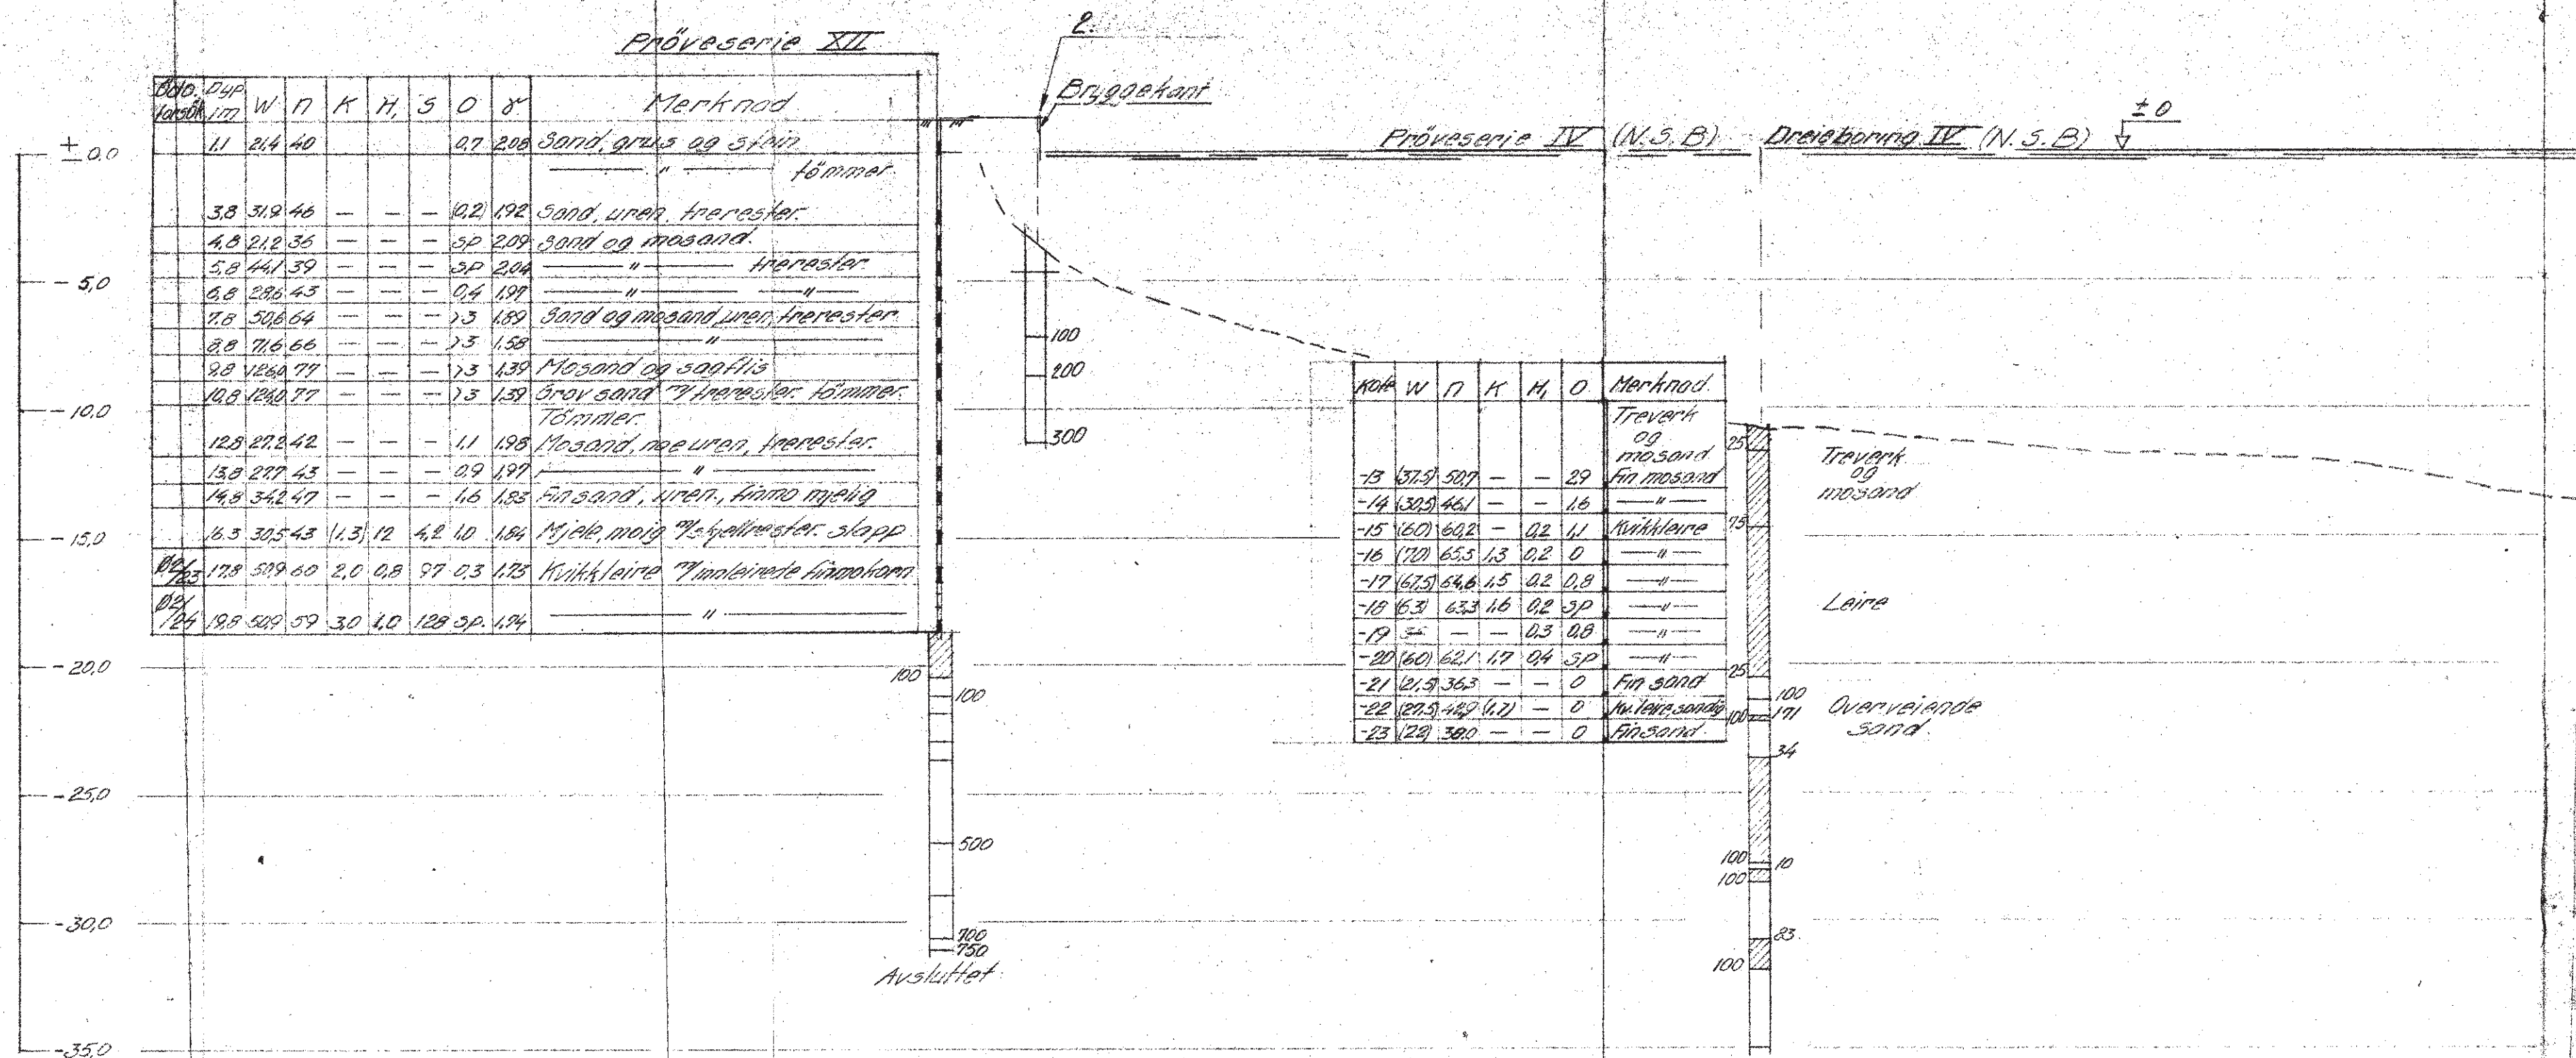 Pröveserie XII
2.
Bryggekant
Pröveserie IV (N.S.B)
Dreieboring IV (N.S.B)
± 0
Ödo. forsök Dyp i m W n K H₁ S O γ Merknad
1.1 21,4 40 0,7 2,08 Sand, grus og stein
— " — tömmer.
3,8 31,9 46 — — — (0,2) 1,92 Sand, uren, trerester.
4,8 21,2 36 — — — SP 2,09 Sand og mosand.
5,8 44,1 39 — — — SP 2,04 — " — trerester
6,8 28,6 43 — — — 0,4 1,97 — " — — " —
7,8 50,6 64 — — — >3 1,89 Sand og mosand, uren, trerester
8,8 71,6 66 — — — >3 1,58 — " —
9,8 126,0 77 — — — >3 1,39 Mosand og sagflis
10,8 124,0 77 — — — >3 1,39 Grov sand m/trerester. tömmer.
Tömmer.
12,8 27,2 42 — — — 1,1 1,98 Mosand, noe uren, trerester.
13,8 27,7 43 — — — 0,9 1,97 — " —
14,8 34,2 47 — — — 1,6 1,83 Fin sand, uren., finmo mjelig
16,3 30,5 43 (1,3) 12 4,2 1,0 1,84 Mjele, moig m/skjellrester. slapp
Ö2/23 17,8 50,9 60 2,0 0,8 97 0,3 1,73 Kvikkleire m/innleirede finmokorn
Ö2/24 19,8 50,9 59 3,0 1,0 128 SP. 1,74 — " —
± 0,0
- 5,0
-10,0
-15,0
-20,0
-25,0
-30,0
-35,0
100
200
300
100
100
500
700
750
Avsluttet
Kote W n K H₁ O Merknad.
Treverk
og
mosand
-13 (37,5) 50,7 — — 2,9 Fin mosand
-14 (30,5) 46,1 — — 1,6 — " —
-15 (60) 60,2 — 0,2 1,1 Kvikkleire
-16 (70) 65,5 1,3 0,2 0 — " —
-17 (67,5) 64,6 1,5 0,2 0,8 — " —
-18 (63) 63,3 1,6 0,2 SP — " —
-19 — — 0,3 0,8 — " —
-20 (60) 62,1 1,7 0,4 SP — " —
-21 (21,5) 36,3 — — 0 Fin sand
-22 (27,5) 42,9 (1,7) — 0 Kv.leire sandig
-23 (22) 38,0 — — 0 Fin sand
25
75
25
100
100
171
34
100
10
100
83
100
Treverk
og
mosand
Leire
Overveiende
sand.